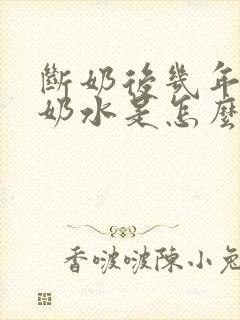 斷奶後幾年
奶水是怎麼
香啵啵陳小兔